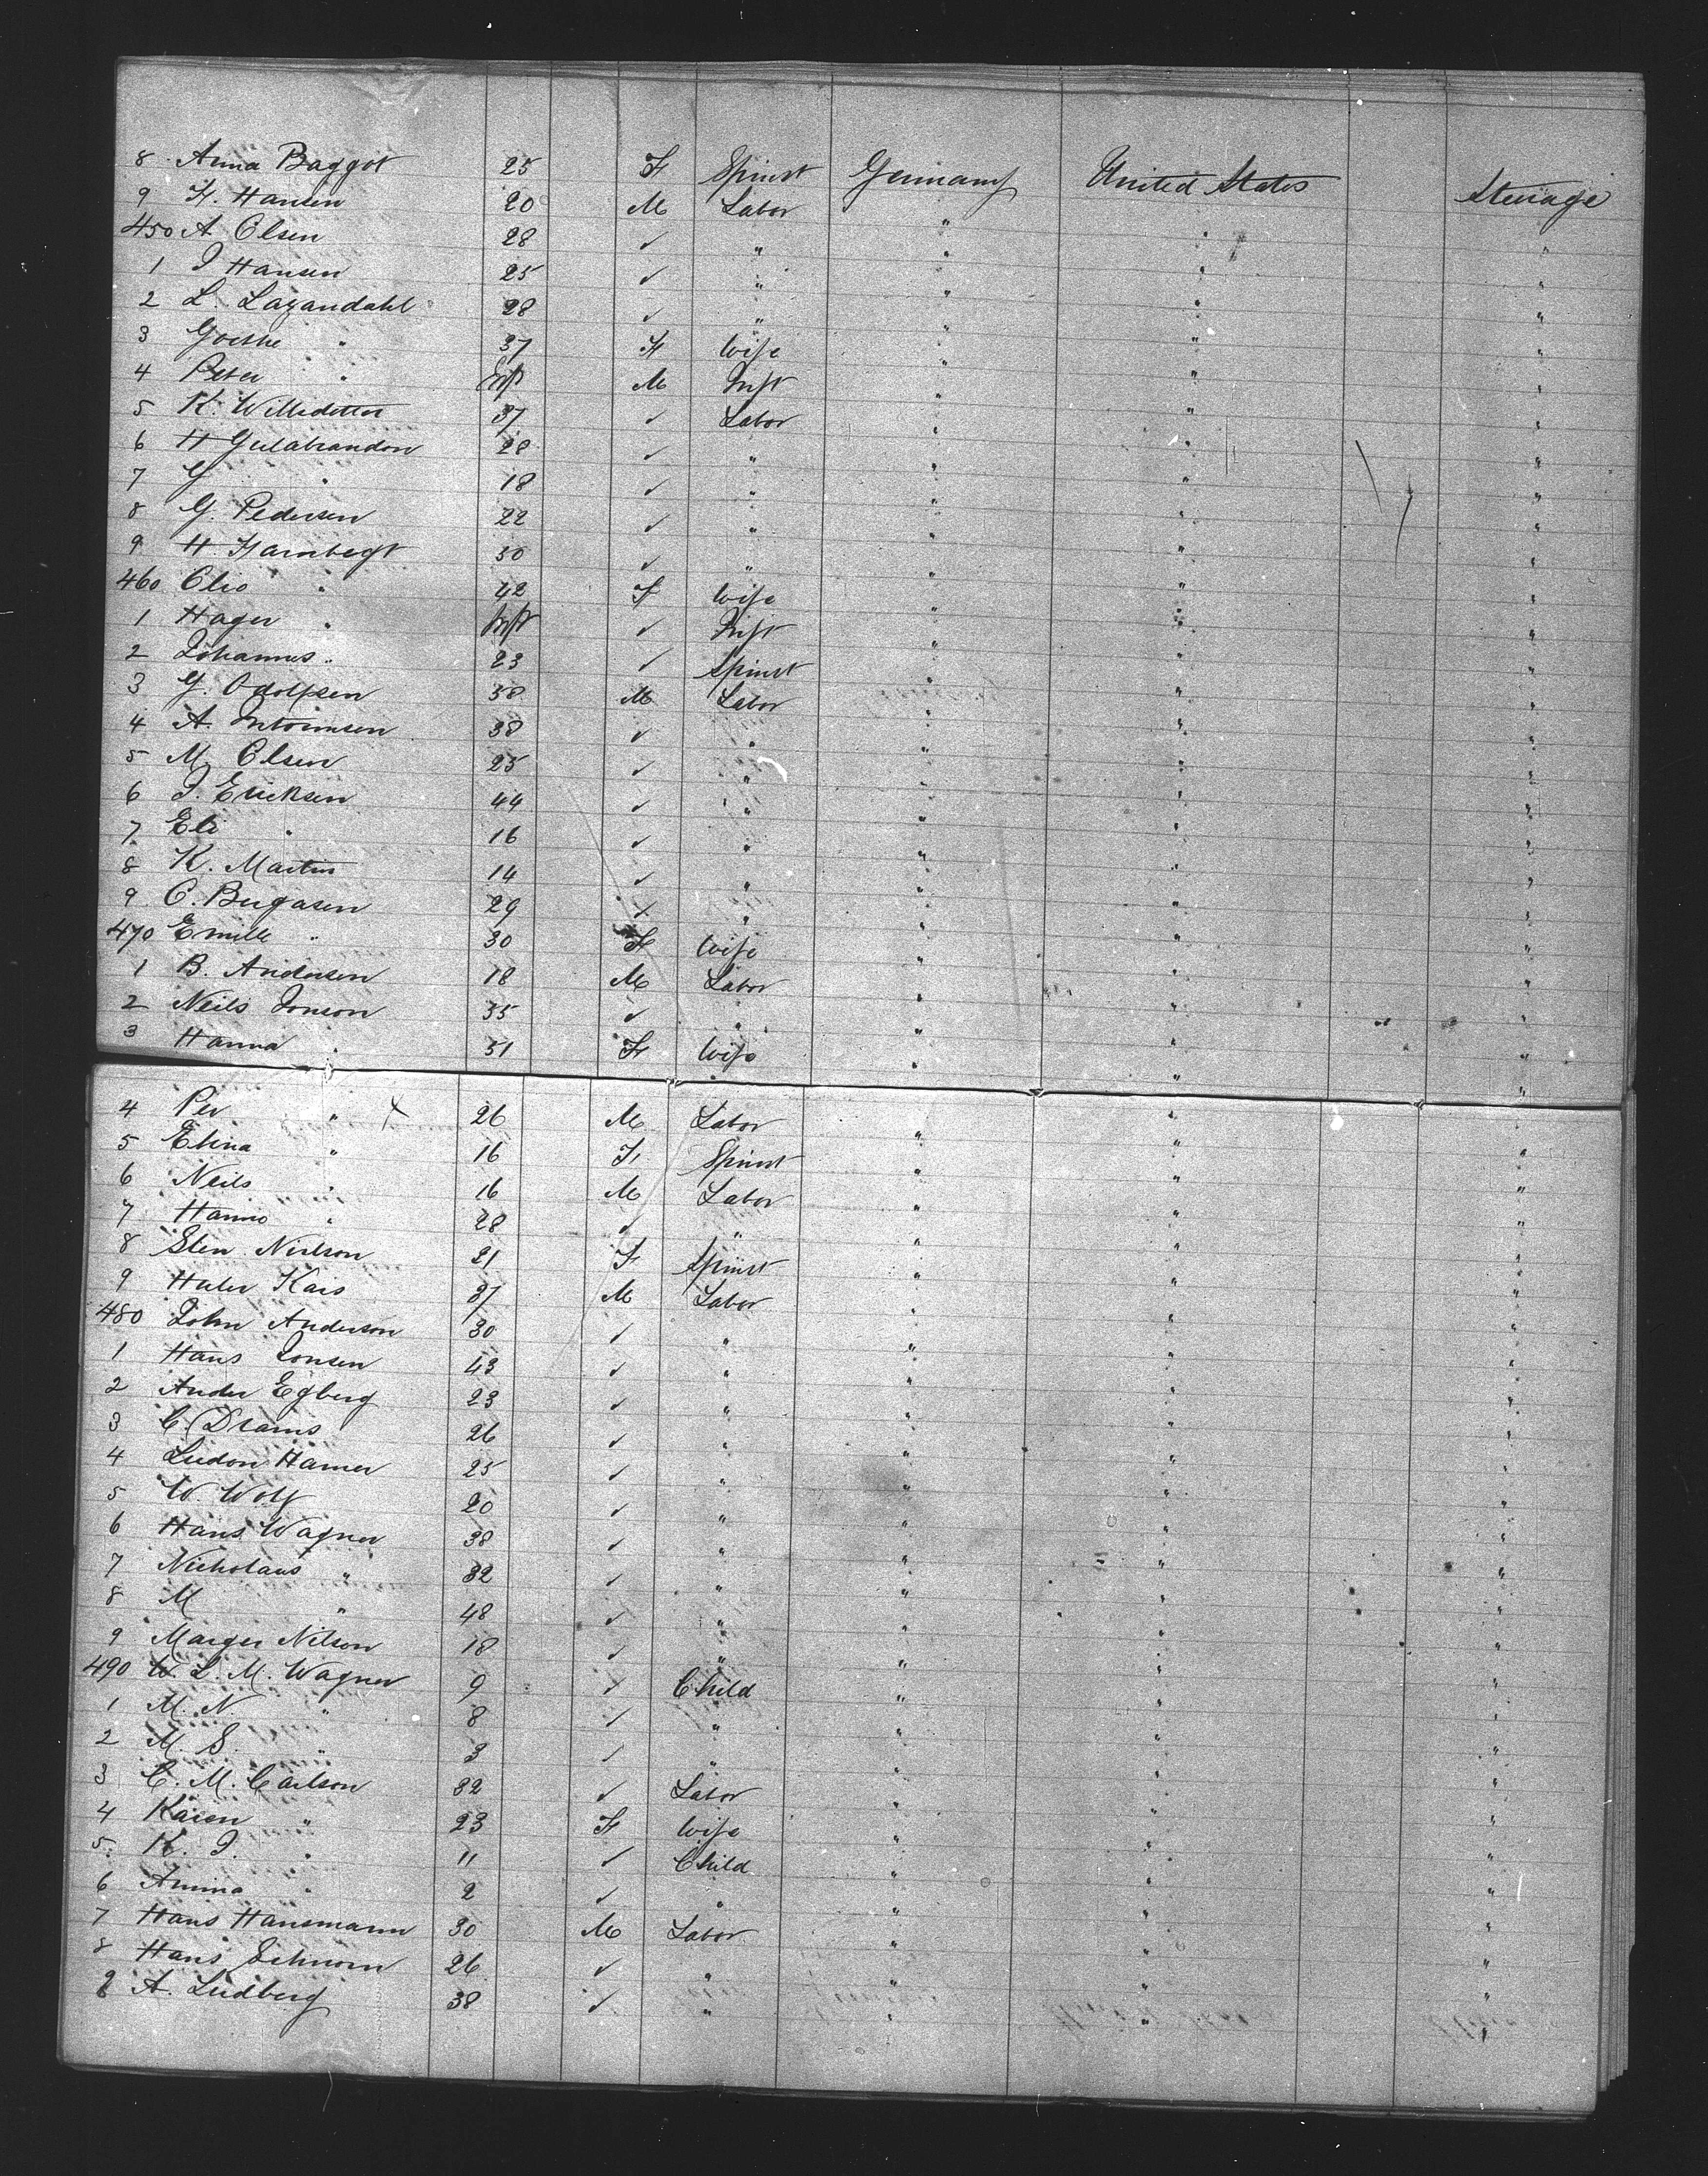 8 Anna Baggot 25 F Spinst Germany United States Steerage
9 H. Hansen 20 M Labor " " "
450 A Olsen 28 ✓ " " " "
1 J Hansen 25 ✓ " " " "
2 L. Lazandahl 28 ✓ " " " "
3 Goethe " 37 F Wife " " "
4 Peter " Inft M Inft " " "
5 K. 37 ✓ Labor " " "
6 H Gulabrandon 28 ✓ " " " "
7 G " 18 ✓ " " " "
8 G. Pedersen 22 ✓ " " " "
9 H. 30 ✓ " " " "
460 Olio " 42 F Wife " " "
1 Hager " Inft ✓ Inft " " "
2 Johannes " 23 ✓ Spinst " " "
3 G. Odolfsen 38 M Labor " " "
4 A. 38 ✓ " " " "
5 M. Olsen 25 ✓ " " " "
6 J. Ericksen 44 ✓ " " " "
7 Eli " 16 ✓ " " " "
8 K. Martin 14 ✓ " " " "
9 C. Bugasen 29 ✓ " " " "
470 Emille " 30 F Wife " " "
1 B. Andersen 18 M Labor " " "
2 Neils Jonson 35 ✓ " " " "
3 Hanna " 51 F Wife " " "
4 Per " x 26 M Labor " " "
5 Elina " 16 F Spinst " " "
6 Neils " 16 M Labor " " "
7 Hanns " 28 ✓ " " " "
8 Sten Nielson 21 F Spinst " " "
9 Kars 37 M Labor " " "
480 John Anderson 30 ✓ " " " "
1 Hans Jonsen 43 ✓ " " " "
2 Ander Egberg 23 ✓ " " " "
3 C. Drams 26 ✓ " " " "
4 Ludon Hamer 25 ✓ " " " "
5 W. Wolf 20 ✓ " " " "
6 Hans Wagner 38 ✓ " " " "
7 Nicholaus " 32 ✓ " " " "
8 M " 48 ✓ " " " "
9 Marger Nilson 18 ✓ " " " "
490 W. L. M. Wagner 9 ✓ Child " " "
1 M. N. " 8 ✓ " " " "
2 M. S " 3 ✓ " " " "
3 C. M. Carlson 32 ✓ Labor " " "
4 Karen " 23 F Wife " " "
5 K. J. " 11 ✓ Child " " "
6 Amina " 2 ✓ " " " "
7 Hans Hansmann 30 M Labor " " "
8 Hans 26 ✓ " " " "
9 A. Ludberg 38 ✓ " " " "